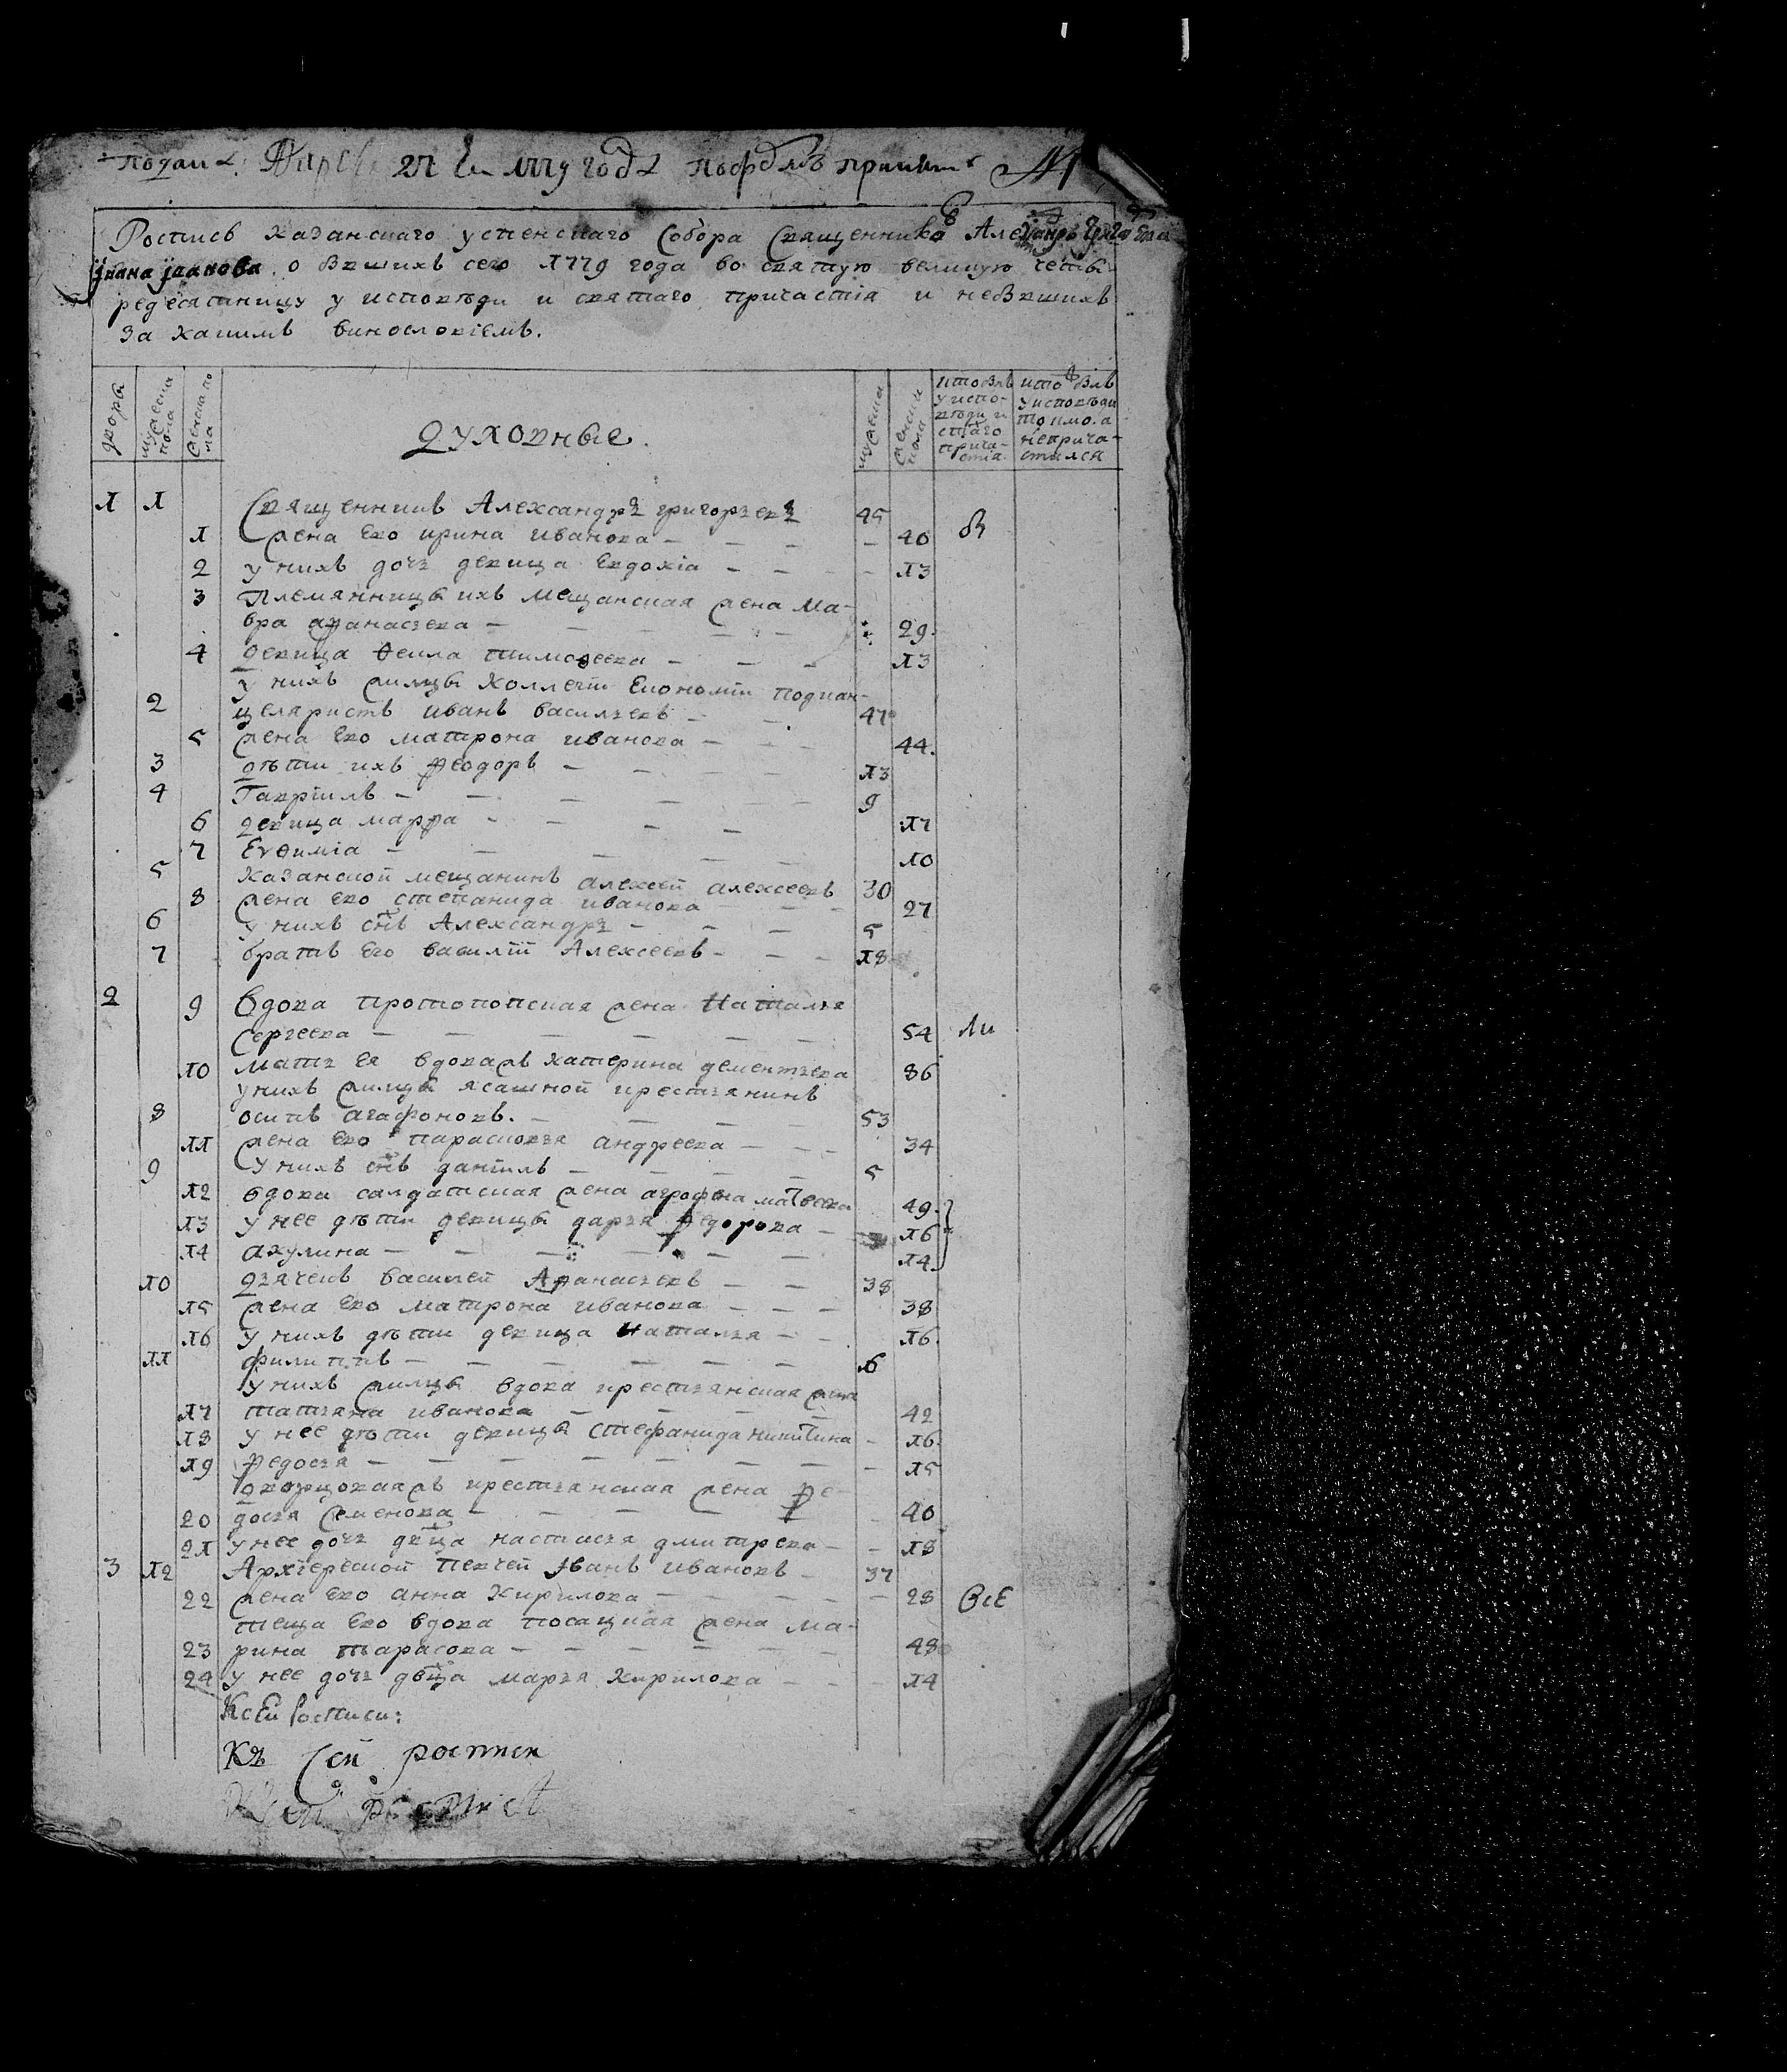 подан
27 1779 года
Роспись казанскаго успенскаго Собора Священниковъ Александра
Iвана Iванова о бывшихъ сего 1779 года во святую великую четы-
редесятницу у исповѣди и святаго причастiя и небывшихъ
за какимъ винословiемъ.
дворы
мужеска пола
женска пола
Духовные.
мужеска
женска пола
кто былъ у испо-вѣди и стаго прича-стiя
кто былъ у исповѣди токмо. а неприча-стился
1 1 Священникъ Александръ григорьевъ 45
1 жена ево ирина иванова 40
2 у нихъ дочь девица Евдокiа 13
3 Племянницы ихъ мещанская жена Ма-
вра афанасьева 29
4 девица Фекла тимофеева 13
у нихъ жилцы Коллегiи Економiи подкан-
2 целяристъ иванъ васильевъ 47
5 жена ево матрона иванова 44
3 дѣти ихъ Феодоръ 13
4 Гаврiилъ 9
6 девица марфа 17
7 Еvѳимiа 10
5 казанской мещанинъ алексей алексеевъ 30
8 жена ево степанида иванова 27
6 у нихъ снъ Александръ 5
7 братъ Его василiй Алексеевъ 18
2 9 вдова протопопская жена Наталья
Сергеева 54
10 мать Ея вдова жъ катерина дементьева 86
у нихъ жилцы ясашной крестьянинъ
8 осипъ агафоновъ. 53
11 жена ево парасковья андреева 34
9 У нихъ снъ данiилъ 5
12 вдова салдатская жена агрофена матвеева 49
13 у нее дѣти девицы дарья Федорова 16
14 акулина 14
10 дьячекъ василей Афанасьевъ 38
15 жена ево матрона иванова 38
16 у нихъ дѣти девица Наталья 16
11 филиппъ 6
у нихъ жилцы вдова крестьянская жена
17 татьяна иванова 42
18 у нее дѣти девицы стефанида никитина 16
19 Федосья 15
дворцовая жъ крестьянская жена Фе-
20 досья Семенова 40
21 у нее дочь двца настасья дмитрева 18
3 12 Архiерейской певчей Iванъ Ивановъ 37
22 жена ево анна Кирилова 28 Все
теща ево вдова посацкая жена ма-
23 рина тарасова 48
24 у нее дочь двца марья Кирилова 14
Ксей Росписи:
Къ сей росписи